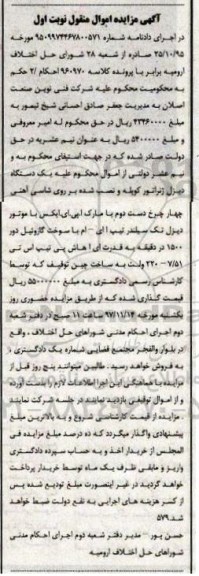 آگهی مزایده اموال منقول نوبت اول
در اجرای دادنامه شماره ۹۵۰۹۹۷۴۴۶۷۸۰۰۵۷۱ مورخه
۹۵/۱۰/۲۵ صادره از شعبه ۲۸ شورای حل اختلاف
ارومیه برابر با پرونده کلاسه ۹۶۰۹۷۰ احکام /۲ حکم
به محکومیت محکوم علیه شرکت فنی نوین صنعت
اصلان به مدیریت جعفر صادق احسانی شیخ تیمور به
مبلغ ۲۳۴۶۰۰۰۰ ریال در حق محکوم له امیر معروفی
و مبلغ ۵۴۰۰۰۰۰ ریال به عنوان نیم عشریه در حق
دولت صادر شده که در جهت استیفای محکوم به و
نیم عشر دولتی از اموال محکوم علیه یک دستگاه
دیزل ژنراتور کوپله و نصب شده بر روی شاسی آهنی
چهار چرخ دست دوم با مارک ای‌پی‌ای‌کس با موتور
دیزل تک سیلندر تیپ ۱ ای – ام با سوخت گازوئیل دور
۱۵۰۰ در دقیقه به قدرت ای اهانی پی تیپ اس تی
۷/۵۱ – ۲۲۰ ولت به ساخت چین توقیف که توسط
کارشناس رسمی دادگستری به مبلغ ۵۵۰۰۰۰۰۰ ریال
قیمت گذاری شده که از طریق مزایده حضوری روز
یکشنبه مورخه ۹۷/۱۱/۱۴ ساعت ۱۱ صبح در دفتر شعبه
دوم اجرای احکام مدنی شوراهای حل اختلاف ، واقع
در بلوار والفجر مجتمع قضایی شماره یک دادگستری ،
به فروش خواهد رسید . طالبین میتوانند پنج روز قبل از
مزایده با هماهنگی این اجرا اطلاعات لازم را بدست آورده
و از اموال توقیفی بازدید نمایند در جلسه شرکت نمایند
. مزایده از قیمت کارشناسی شروع و به بالاترین مبلغ
پیشنهادی واگذار میگردد که ده درصد مبلغ مزایده فی
المجلس از خریدار اخذ و به حساب سپرده دادگستری
واریز و مابقی ظرف یک ماه توسط خریدار پرداخت
خواهد گردید در غیر اینصورت مبلغ تودیع شده پس
از کسر هزینه های اجرایی به نفع دولت ضبط خواهد
شد.۵۷۹
حسن پور – مدیر دفتر شعبه دوم اجرای احکام مدنی
شوراهای حل اختلاف ارومیه